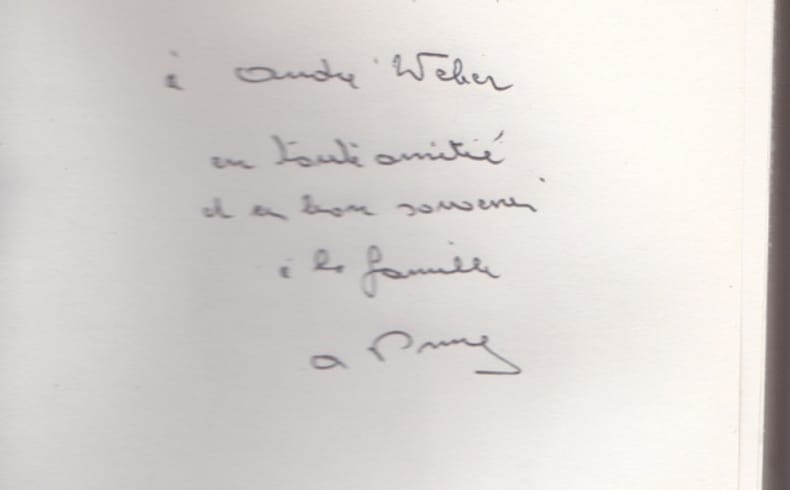 à André Weber
en toute amitié
et en bon souvenir
à la famille
a